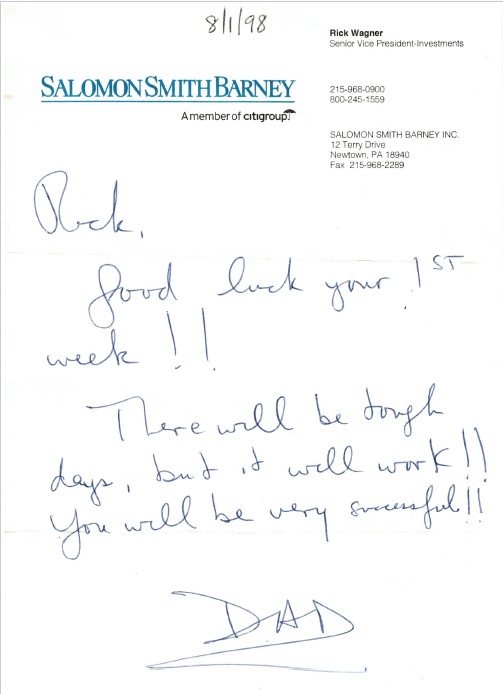 8/1/98
Rick Wagner
Senior Vice President-Investments
SALOMON SMITH BARNEY
A member of citigroup
215-968-0900
800-245-1559
SALOMON SMITH BARNEY INC.
12 Terry Drive
Newtown, PA 18940
Fax 215-968-2289
Rick,
Good luck your 1ST
week!!
There will be tough
days, but it will work!!
You will be very successful!!
DAD